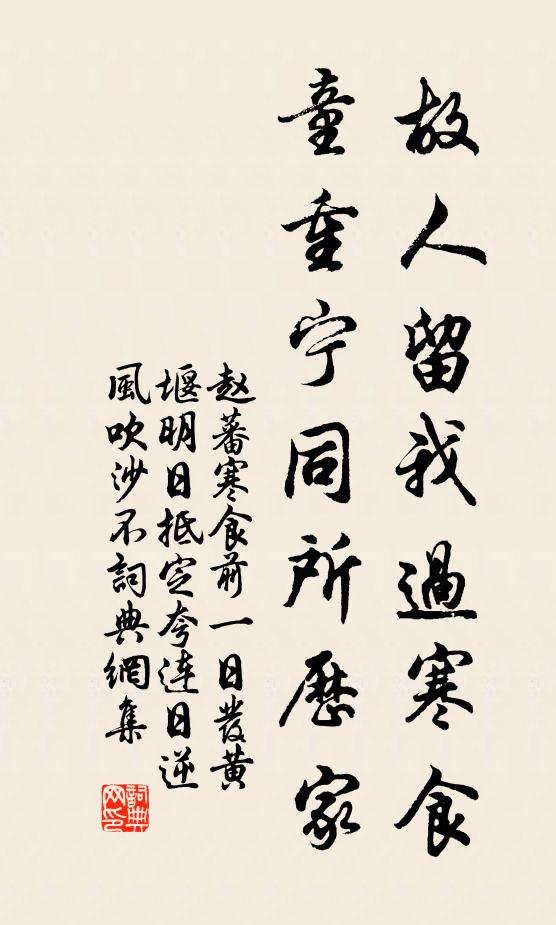 故人留我過寒食
童重宁同所歷家
赵蕃寒食前一日發黄
堰明日抵定夸連日逆
風吹沙不詞典網集
詞典網印